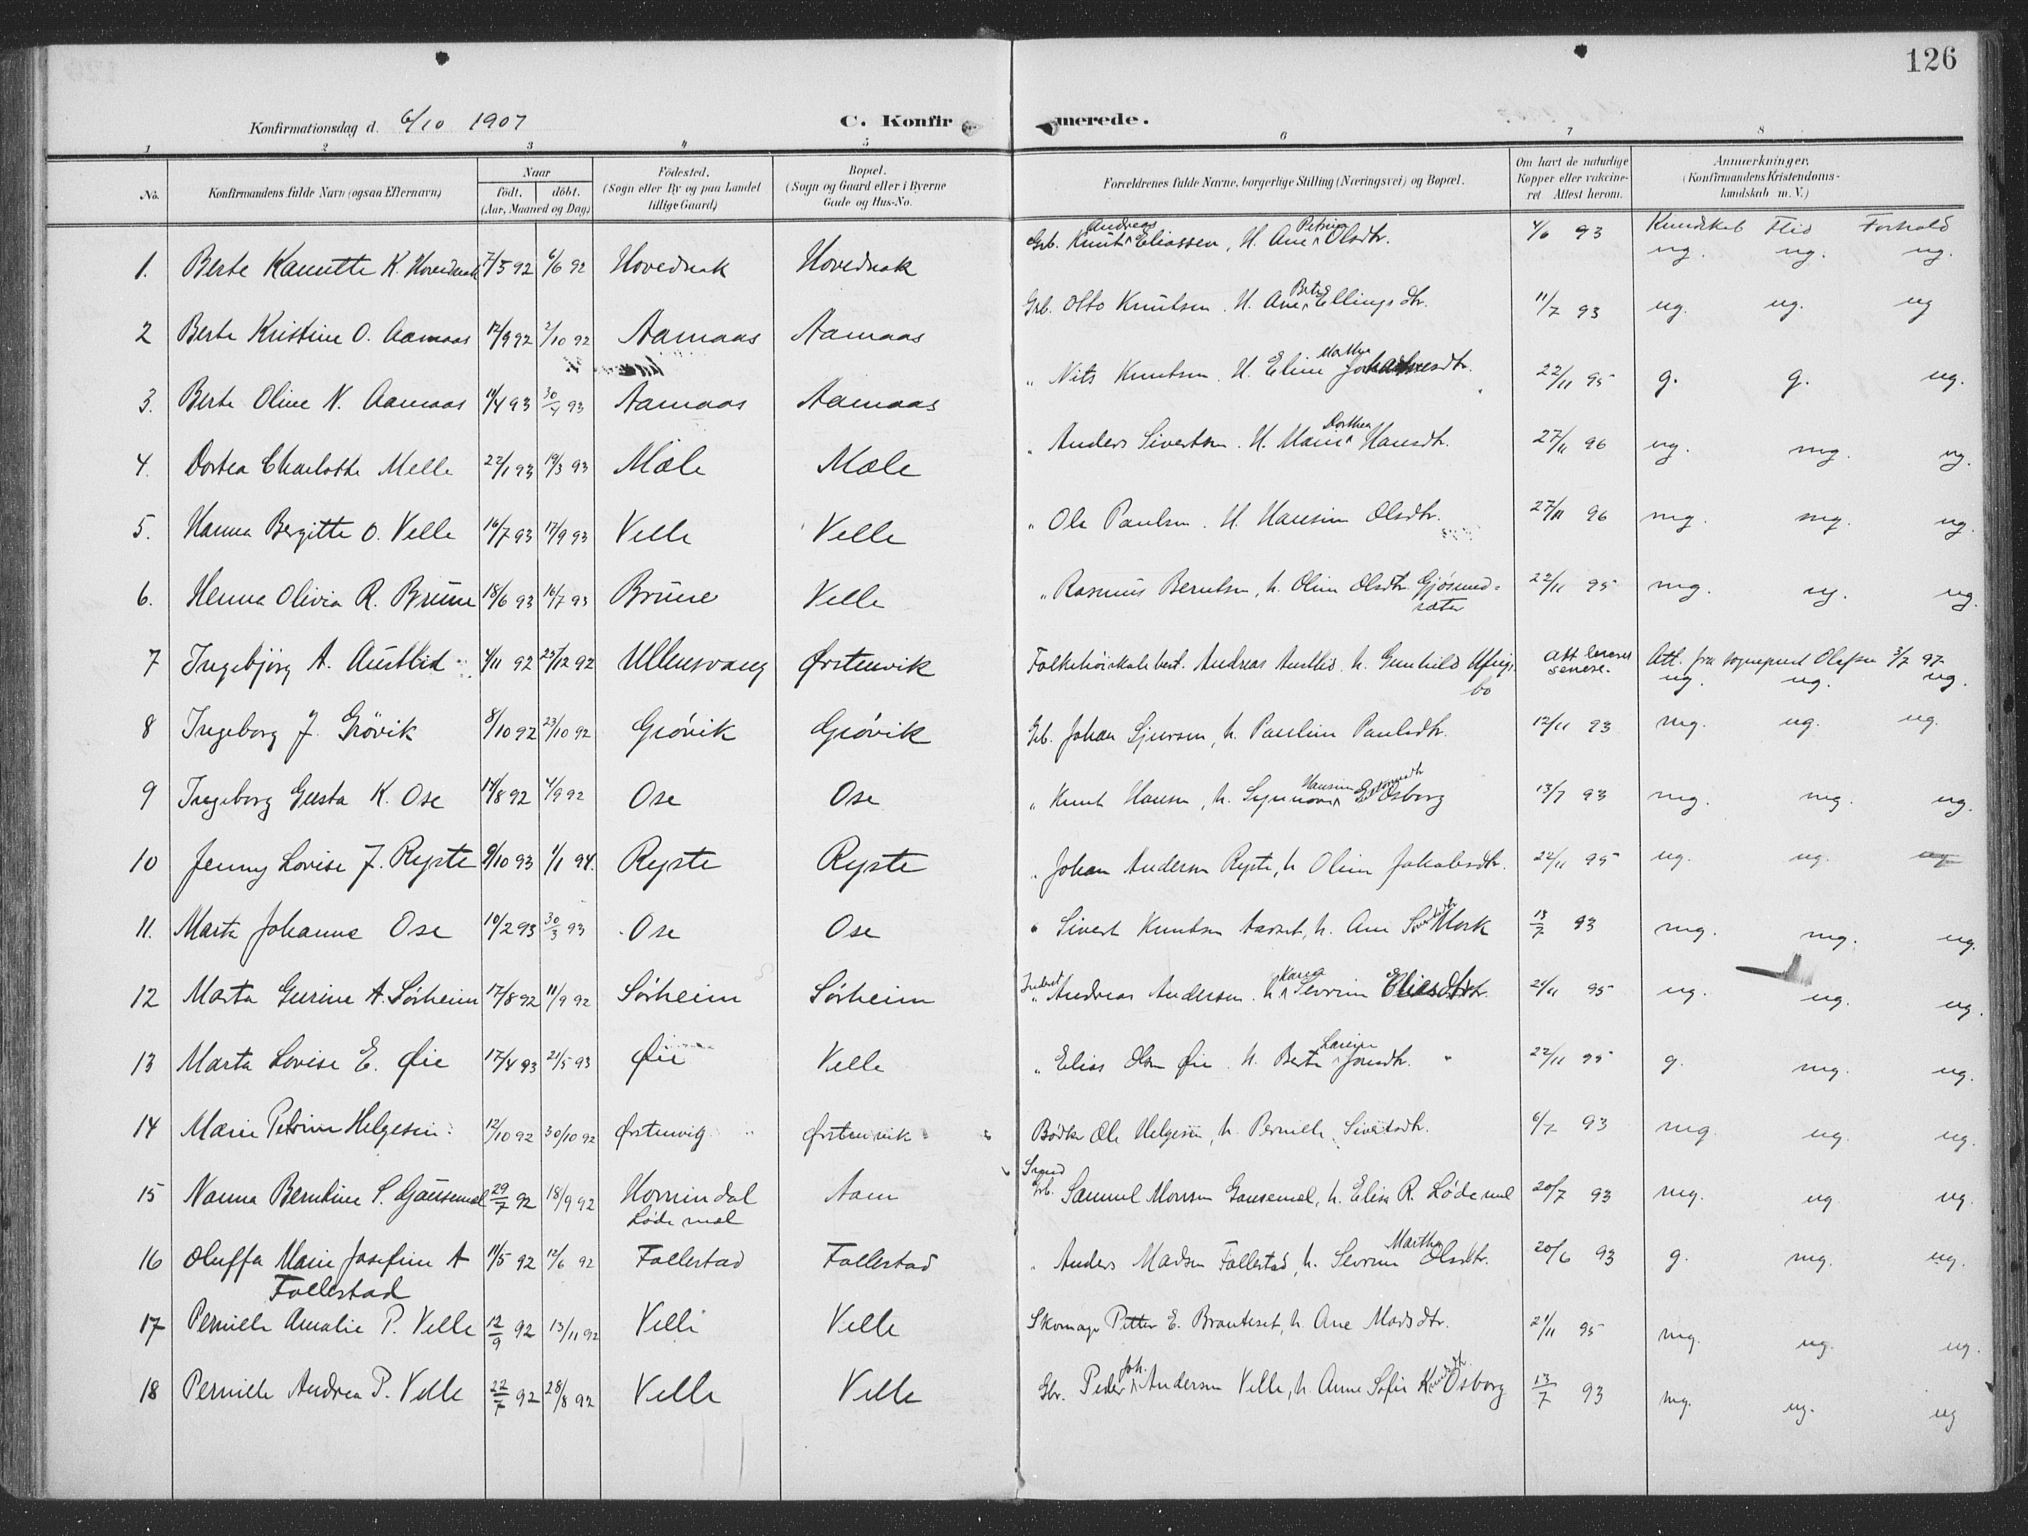 126
Konfirmationsdag d. 6/10 1907 C. Konfirmerede.
1 2 3 4 5 6 7 8
No. Konfirmandens fulde Navn (ogsaa Efternavn) Naar født. døbt. (Aar, Maaned og Dag) Fødested. (Sogn eller By og paa Landet tillige Gaard) Bopæl. (Sogn og Gaard eller i Byerne Gade og Hus-No. Forældrenes fulde Navne, borgerlige Stilling (Næringsvei) og Bopæl. Om havt de naturlige Kopper eller vakcineret Attest herom. Anmærkninger. (Konfirmandens Kristendomskundskab m. V.)
Kundskab Flid Forhold
1. Berte Kanutte K. Hovednak 7/5 92 6/6 92 Hovednak Hovednak Grb. Knut Andreas Eliassen, H. Ane Petrine Olsdtr. 4/6 93 ug. ug. ug.
2 Berte Kristine O. Aamaas 12/9 92 2/10 92 Aamaas Aamaas Grb. Otto Knutsen. H. Ane Ellingsdtr. 11/7 93 ug. ug. ug
3. Berte Oline N. Aamaas 11/4 93 30/4 93 Aamaas Aamaas " Nils Knutsen. H. Eline 22/11 95 g. g. ug.
4. Dortea Charlotte Melle 22/1 93 19/3 93 Mæle Mæle " Anders Sivertsen. H. Marie Dorthea Hansdtr. 27/11 96 ug. mg. ug.
5. Hanna Bergitte O. Velle 16/7 93 17/9 93 Velle Velle " Ole Paulsen. H. Hansine Olsdtr. 27/11 96 mg. mg. ug.
6. Henna Olivia R. Brune 18/6 93 16/7 93 Brune Velle " Rasmus Berntsen, h. Oline Olsdtr. Gjøsund-
sæter 22/11 95 mg. ug. ug.
7 Ingebjørg A. Austlid 4/11 92 25/12 92 Ullensvang Ørstenvik Folkehøiskolebest. Andreas Austlid. h. Gunhild
bo Att. leveres senere. Att. fra sogneprest Olafsen 3/7 97. ug. ug. ug.
8 Ingeborg J. Grøvik 8/10 92 23/10 92 Grøvik Grøvik Grb. Johan Sjursen, h. Pauline Paulsdtr. 12/11 93 mg. ug. ug.
9 Ingeborg Gusta K. Ose 14/8 92 4/9 92 Ose Ose " Knut Hansen, h. Synnove Hansine Osborg 13/7 93 mg. mg. ug.
10 Jenny Lovise J. Ryste 9/10 93 1/1 94. Ryste Ryste " Johan Andersen Ryste, h Oline Jakobsdtr. 22/11 95 ug. ug. ug
11. Marta Johanne Ose 10/2 93 30/3 93 Ose Ose " Sivert Knutsen Aarset, h. Ane Mork 13/7 93 mg. mg. ug.
12 Marta Gurine A. Sørheim 17/8 92 11/9 92 Sørheim Sørheim " Andreas Andersen. h Karen Sevrine Eliasdtr. 21/11 95 ug. ug. ug.
13 Marta Lovise E. Øie 17/4 93 21/5 93 Øie Velle " Elias Olsen Øie. h. Berte Larine Jonsdtr. 22/11 95 g. mg. ug.
14 Marie Petrine Helgesen 12/10 92 30/10 92 Ørstenvig Ørstenvik Bødker Ole Helgesen, h. Pernille Sivertsdtr. 6/7 93 mg. ug. ug.
15 Nanna Berntine S. Gausemel 29/7 92 18/9 92 Hornindal
Lødemel Aam Grb. Samuel Monsen Gausemel, h. Elise R. Lødemel 20/7 93 mg. ug ug.
16 Oluffa Marie Josefine A
Follestad 11/5 92 12/6 92 Follestad Follestad " Anders Madsen Follestad, h. Sevrine Martha Olsdtr. 20/6 93 g. mg. ug.
17 Pernille Amalie P. Velle 12/9 92 13/11 92 Velle Velle Skomager Petter E. Brauteset, h. Ane Madsdtr. 21/11 95 mg. ug. ug.
18 Pernille Andrea P. Velle 22/7 92 28/8 92 Velle Velle Gbr. Peder Joh. Andersen Velle, h Anne Sofie Osborg 13/7 93 mg. ug. ug